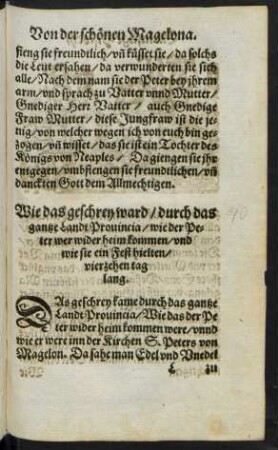 Von der schönen Magelona.
fieng sie freundtlich / vn̄ küsset sie / da solchs
die Leut ersahen / da verwunderten sie sich
alle / Nach dem nam sie der Peter bey jhrem
arm / vnd sprach zu Vatter vnnd Mutter /
Gnediger Herr Vatter / auch Gnedige
Fraw Mutter / diese Jungfraw ist die je-
nig / von welcher wegen ich von euch bin ge-
zogen / vn̄ wisset / das sie ist ein Tochter des
Königs von Neaples / Da giengen sie jhr
entgegen / vmbfiengen sie freundtlichen / vn̄
danckten Gott dem Allmechtigen.
Wie das geschrey ward / durch das
gantze Landt Prouincia / wie der Pe-
ter wer wider heim kommen / vnd
wie sie ein Fest hielten /
vierzehen tag
lang.
DAs geschrey kame durch das gantze
Landt Prouincia / Wie das der Pe
ter wider heim kommen were / vnnd
wie er were inn der Kirchen S. Peters von
Magelon. Da sahe man Edel vnd Vnedel
zu
40